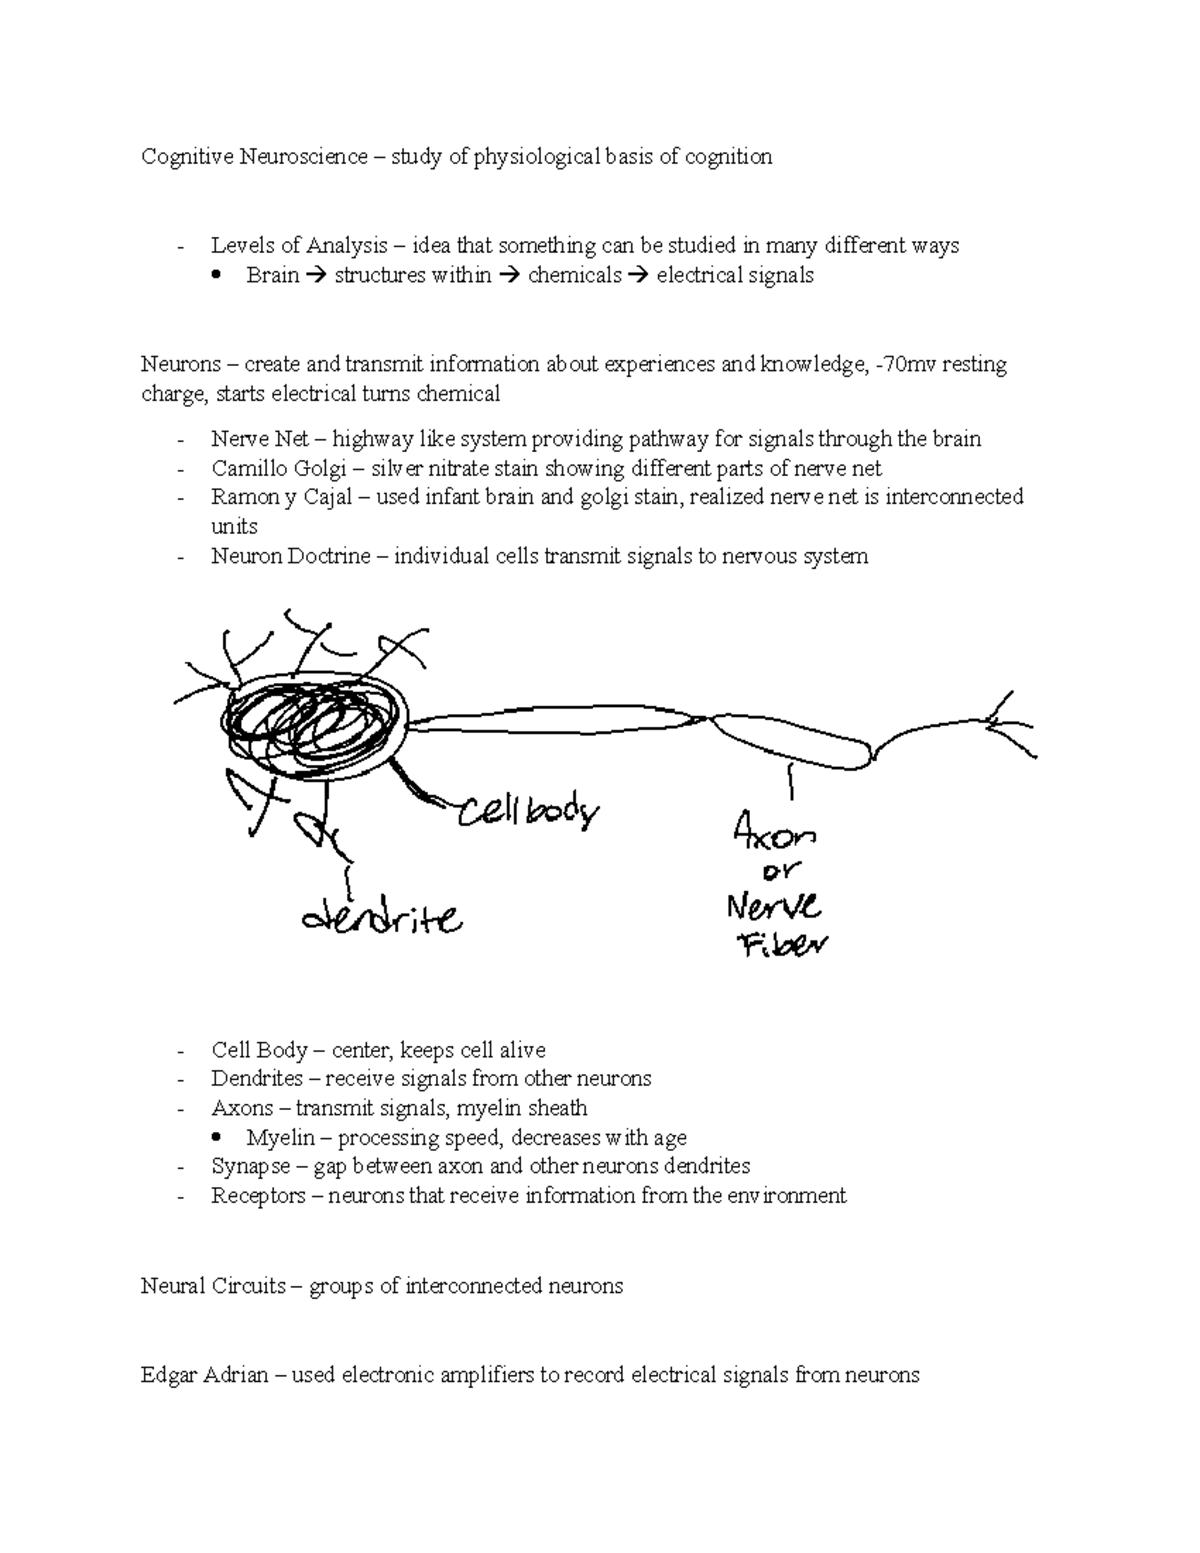 Cognitive Neuroscience – study of physiological basis of cognition
- Levels of Analysis – idea that something can be studied in many different ways
• Brain → structures within → chemicals → electrical signals
Neurons – create and transmit information about experiences and knowledge, -70mv resting
charge, starts electrical turns chemical
- Nerve Net – highway like system providing pathway for signals through the brain
- Camillo Golgi – silver nitrate stain showing different parts of nerve net
- Ramon y Cajal – used infant brain and golgi stain, realized nerve net is interconnected
units
- Neuron Doctrine – individual cells transmit signals to nervous system
Cell body
Axon
or
Nerve
Fiber
dendrite
- Cell Body – center, keeps cell alive
- Dendrites – receive signals from other neurons
- Axons – transmit signals, myelin sheath
• Myelin – processing speed, decreases with age
- Synapse – gap between axon and other neurons dendrites
- Receptors – neurons that receive information from the environment
Neural Circuits – groups of interconnected neurons
Edgar Adrian – used electronic amplifiers to record electrical signals from neurons